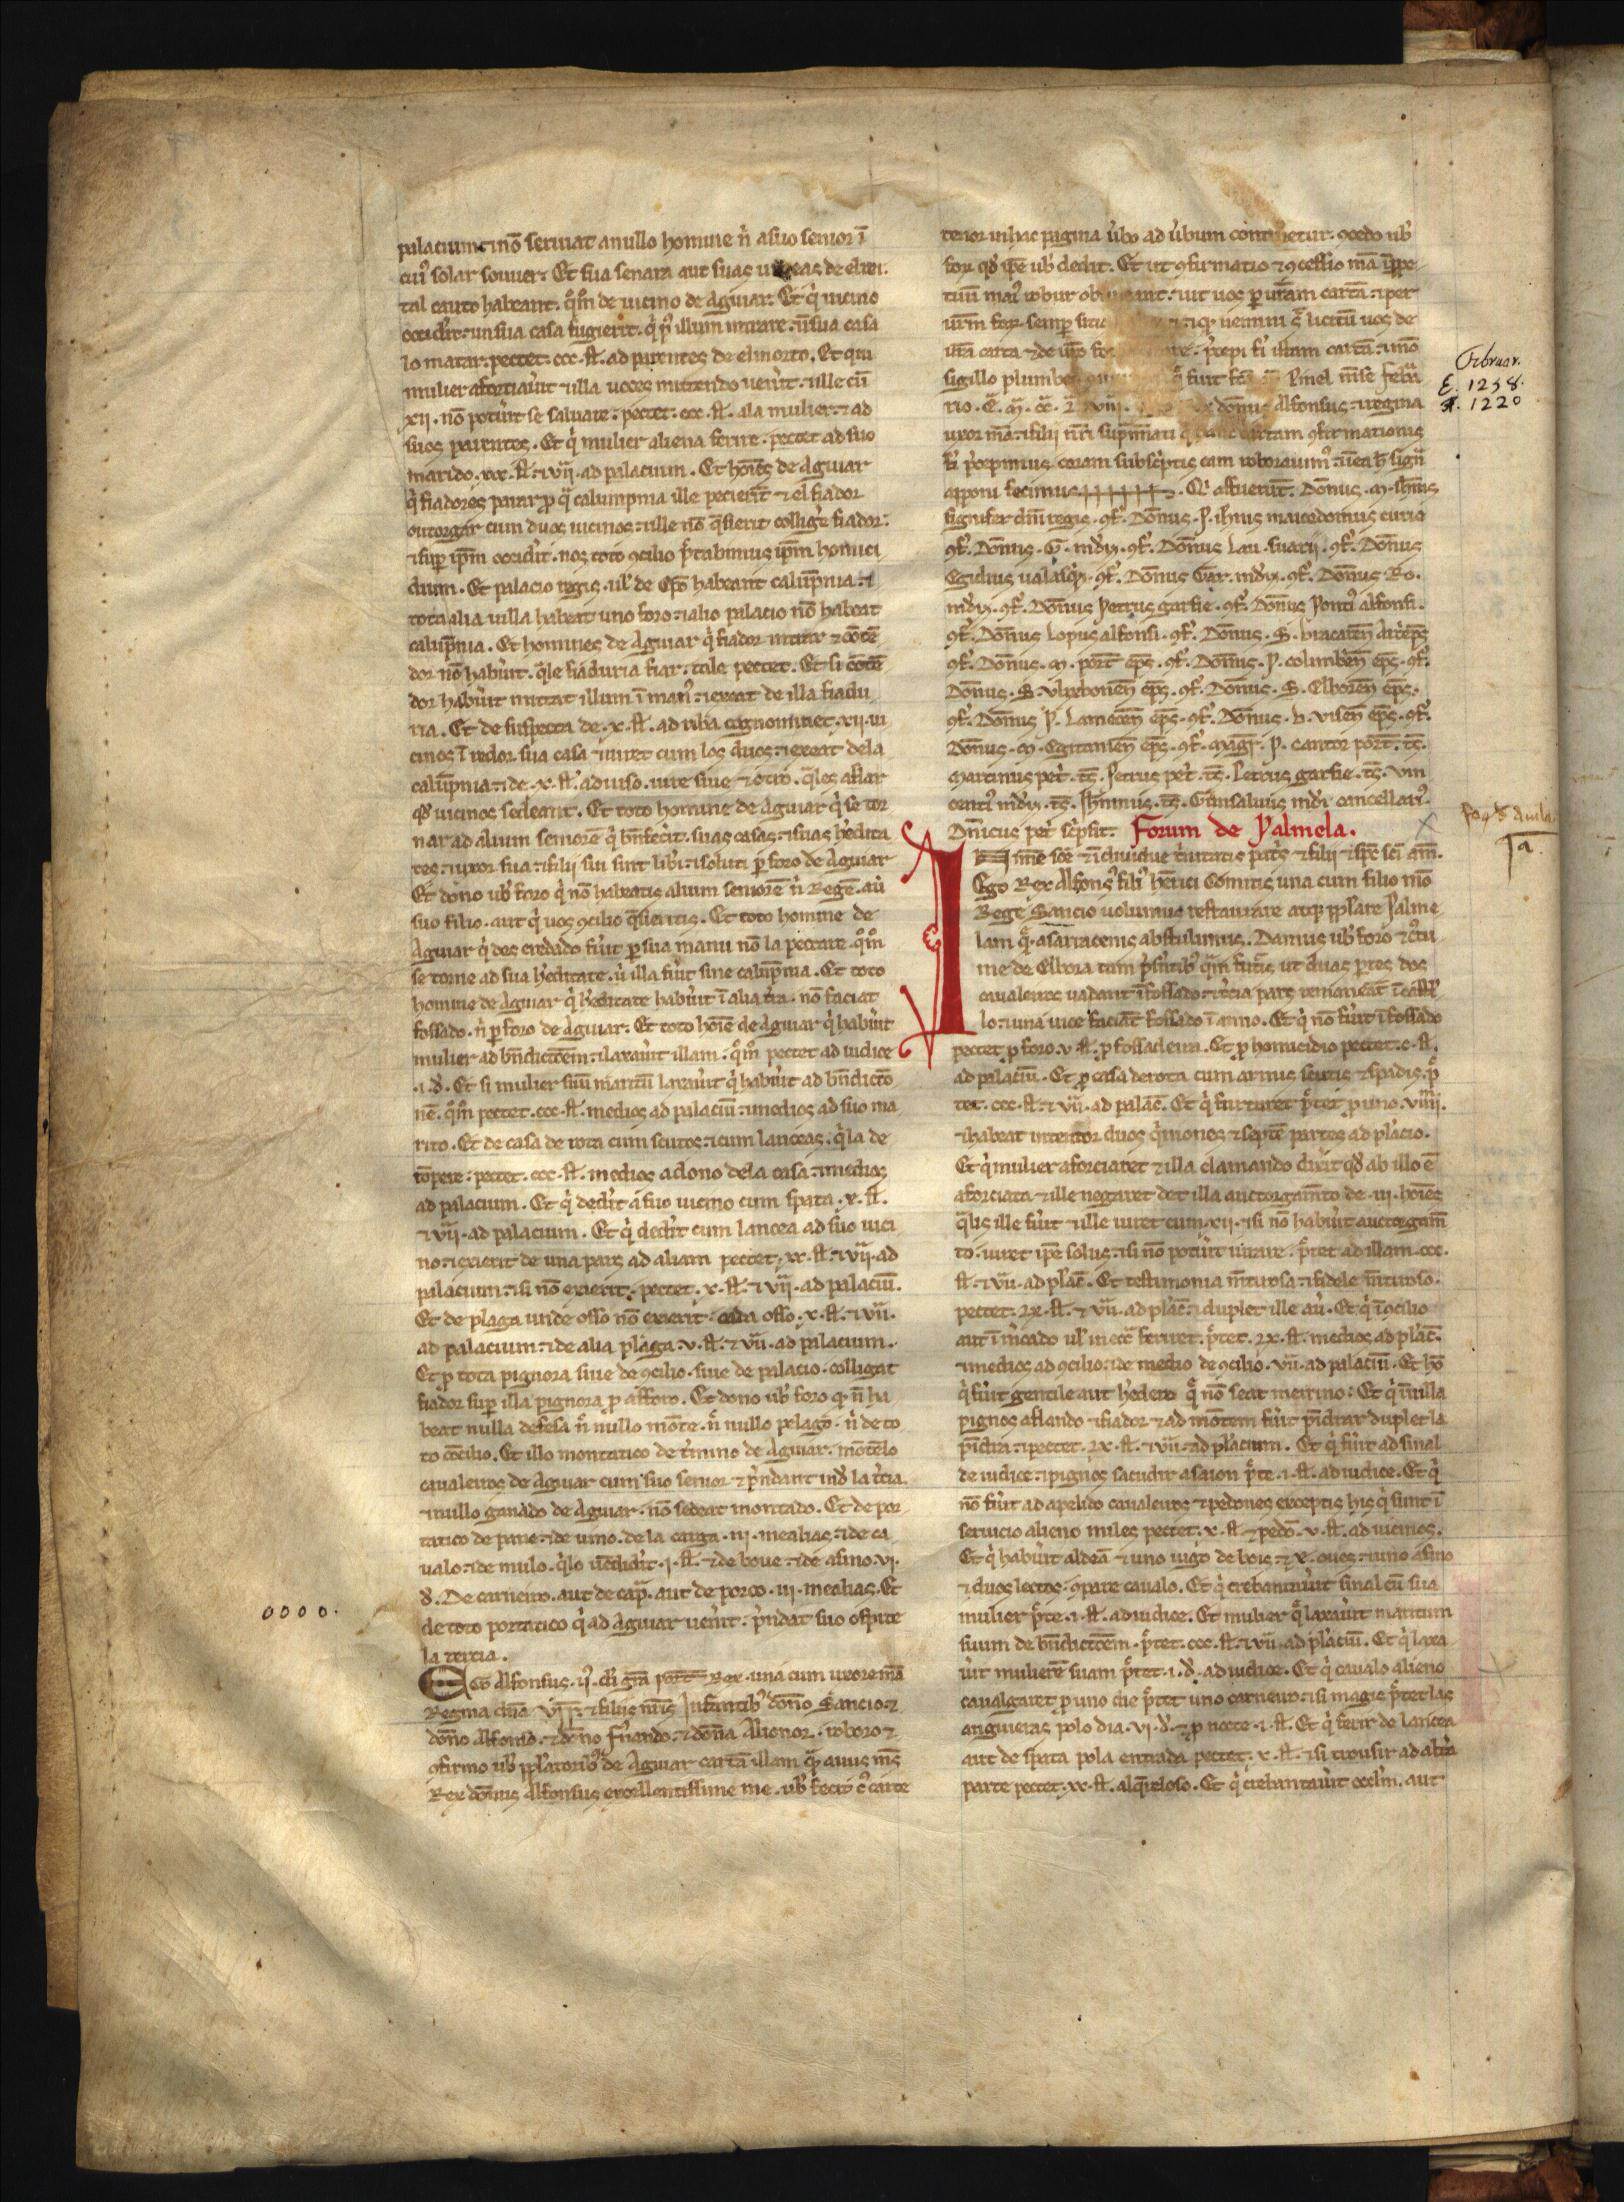 palacium: ⁊ nō seruiat a nullo homine n̄ a suo senior ī
cui9 solar souuer. Et sua senara aut suas uineas de el rei.
tal cauto habeant. qm̊ de uicino de Aguiar. Et q̇ uicino
occid̓it: ⁊ in sua casa fugierit. q̇ p9 illum intrare: ⁊ ī sua casa
lo matar: pectet. ccc. sł. ad parentes de el morto. Et qui
mulier aforciau̓it ⁊ illa uoces mittendo uen̓it: ⁊ ille cū
xij. nō potu̓it se saluare: pectet. ccc. sł. a la mulier: ⁊ ad
suos parentes. Et q̇ mulier aliena ferire. pectet ad suo
marido. xxx. sł. ⁊ vijᵃ. ad palacium. Et hoīes de Aguiar
q̇ fiadores parar ꝑ qͣ calumpnia ille pecierit ⁊ el fiador
outorgar cum duos uicinos: ⁊ ille nō q̄sierit collig̓e fiador:
⁊ sup ip̄m occid̓it. nos toto ꝯcilio p̄tabimus ip̄m homici
dium. Et palacio regis. ul̓ de ep̄o habeant calūpnia: ⁊
tota alia uilla habeat uno foro: ⁊ alio palacio nō habeat
calūpnia. Et homines de Aguiar q̇ fiador intrar ⁊ ꝯtē
dor nō habu̓it. q̄le fiaduria fiar. tale pectet. Et si ꝯtē
dor habu̓it mittat illum ī man9: ⁊ exeat de illa fiadu
ria. Et de suspecta de. x. sł. ad riba cognominet. xij. ui
cinos ī redor sua casa ⁊ iuret cum los duos: ⁊ exeat dela
calūpnia: ⁊ de. x. sł. ad iuso. iure siue ⁊ otro. q̄les aflar
q̄ð uicinos sedeant. Et toto homine de Aguiar q̇ se tor
nar ad alium seniorē q̇ bn̄fec̓it: suas casas: ⁊ suas h̓edita
tes: ⁊ uxor sua: ⁊ filij sui sint lib̓i: ⁊ soluti p̱ foro de Aguiar
Et dono uob̓ foro q̇ nō habeatis alium seniorē n̄ Regē. aū
suo filio. aut q̇ uos ꝯcilio q̄sieritis. Et toto homine de
Aguiar q̇ des eredado fu̓it p̱ sua manu nō la pectare. qm̊
se torne ad sua h̓editate. ⁊ illa fu̓it sine calūpnia. Et toto
homine de Aguiar q̇ h̓editate habu̓it ī alia t̓ra. nō faciat
fossado. n̄ p̱ foro de Aguiar: Et toto hoīe de Aguiar q̇ habu̓it
mulier ad bn̄dictōem: ⁊ laxau̓it illam. qm̊ pectet ad iudice
.i. đ. Et si mulier suū maritū laxau̓it q̇ habu̓it ad bn̄dictō
nē. qm̊ pectet. ccc. sł. medios ad palaciū: ⁊ medios ad suo ma
rito. Et de casa de rota cum scutos: ⁊ cum lanceas. q̇ la de
rōpere: pectet. ccc. sł. medios a dono dela casa: ⁊ medios
ad palacium. Et q̇ ded̓it a suo uicino cum spata. x. sł.
⁊ vijᵃ. ad palacium. Et q̇ ded̓it cum lancea ad suo uici
no: ⁊ exierit de una pars ad aliam pectet. xx. sł. ⁊ vijᵃ. ad
palacium: ⁊ si nō exierit. pectet. x. sł. ⁊ vij. ad palaciū.
Et de plaga unde osso nō exierit cada osso. x. sł. ⁊ vijᵃ.
ad palacium: ⁊ de alia plaga. v. sł. ⁊ vijᵃ. ad palacium.
Et ꝑ tota pignora siue de ꝯcilio. siue de palacio. colligat
fiador sup illa pignora ꝑ afforo. Et dono uob̓ foro q̇ n̄ ha
beat nulla defesa n̄ nullo mōte. n̄ nullo pelago. n̄ de to
to cōcilio. Et illo montatico de t̓mino de Aguiar. mōtēlo
caualeiros de Aguiar cum suo senior ⁊ p̄ndant ind̓ la t̓cia.
⁊ nullo ganado de Aguiar. nō sedeat montado. Et de por
tatico de pane: ⁊ de uino. de la carga. iij. mealias: ⁊ de ca
ualo: ⁊ de mulo. q̇ lo uēdid̓it. i. sł. ⁊ de boue: ⁊ de asino. vi.
đ. De carneiro. aut de capͣ. aut de porco. iij. mealias. Et
de toto portatico q̇ ad Aguiar uen̓it. p̄ndat suo ospite
la tercia.
0000.
Ego Alfonsus. ij. di̓ grā port̄ Rex. una cum uxore mēa
Regina dn̄a Vr̄r̄. ⁊ filijs nr̄is Infantib9 dōno Sancio: ⁊
dōno Alfonso: ⁊ dōno F̓nando: ⁊ dōna Alionor. roboro ⁊
ꝯfirmo uob̓ pp̄latorib9 de Aguiar cartā illam quā auus m̄s
Rex dōnus Alfonsus excellentissime me. uob̓ fecit: c9 carte
tenor in hac pagina u̓bo ad u̓bum continetur. ꝯcedo uob̓
foꝝ qð ip̄e uob̓ dedit. Et ut ꝯfirmatio ⁊ ꝯcessio mā ī pp̄e
tuū mai9 robur obtineant: ⁊ ut uos p̱ ur̄am cartā: ⁊ per
ur̄m foꝝ semp sitis
ur̄a carta ⁊ de ur̄o for p̄cepi fi̓ istam cartā: ⁊ meō
sigillo plumbeo q̄ fuit fcā Pinel m̄se feb̄ua
rio. Eͣ. Mͣ. CCͣ. Lͣ viijͣ. dōnus Alfonsus: ⁊ regina
uxor mēa: ⁊ filij nr̄i sup̄nōiati q̇ hanc cartam ꝯfirmationis
fi̓ p̄cepimus. coram subsc̓ptis eam roborauim9: ⁊ ī ea h̓ signa
apponi fecimus ++++++. Q̇ affuerūt. Dōnus. M. ioh̄nis
signifer dn̄i regis. ꝯf̄. Dōnus. P. ioh̄nis maiordomus curie
ꝯf̄. Dōnus. G. mēdij. ꝯf̄. Dōnus Lau. suarij. ꝯf̄. Dōnus
Egidius ualasq̄. ꝯf̄. Dōnus Gar. mēdij. ꝯf̄. Dōnus Ro.
mēdij. ꝯf̄. Dōnus Petrus garsie. ꝯf̄. Dōnus Ponci9 alfonsi.
ꝯf̄. Dōnus Lopus alfonsi. ꝯf̄. Dōnus. S. bracareñ Arc̓ep̄s
ꝯf̄. Dōnus. M. port̄ ep̄s. ꝯf̄. Dōnus. P. colimbrieñ ep̄s. ꝯf̄.
Dōnus. S. vlixboneñ ep̄s. ꝯf̄. Dōnus. S. Elboreñ ep̄s.
ꝯf̄. Dōnus P. Lameceñ ep̄s. ꝯf̄. Dōnus. b. viseñ ep̄s. ꝯf̄.
Dōnus. M. Egitanieñ ep̄s. ꝯf̄. magr̄. P. cantor port̄. ts̄.
Martinus pet̓. ts̄. Petrus pet̓. ts̄. Petrus garsie. ts̄. vin
centi9 mēdij. ts̄. Ioh̄ninus. ts̄. Gunsaluus mēdi cancellari9.
Dn̄icus pet̓ sc̓psit. Forum de Palmela.
In n̄oīe sc̄e ⁊ īdiuidue t̓initatis pat̓s ⁊ filij ⁊ sp̄c sc̄i am̄.
Ego Rex Alfons9 fili9 henrici Comitis una cum filio mēo
Rege Sancio uolumus restaurare atq̄ pp̄lare Palme
lam qͣ. a sarracenis abstulimus. Damus uob̓ foro ⁊ c̊stu
me de Elbora tam p̄sētib9 qͣm futis̄ ut duas ptes dos
caualeiros uadant ī fossado: ⁊ t̓cia pars remaneāt ī castel
lo: ⁊ una uice faciāt fossado ī anno. Et q̇ nō fu̓it ī fossado
pectet ꝑ foro. v. sł. ꝑ fossadeira. Et ꝑ homicidio pectet. c. sł.
ad palaciū. Et ꝑ casa derota cum armis scutis ⁊ spadis. p̄
tet. ccc. sł. ⁊ vijᵃ. ad palac̄. Et q̇ furtaret p̄tet p uno. viiij.
⁊ habeat intentor duos q̇niones ⁊ septē partes ad plācio.
Et q̇ mulier aforciaret ⁊ illa clamando dix̓it q̄ð ab illo ē
aforciata ⁊ ille negaret det illa auctorgam̄to de. iij. hoīes
q̄lis ille fu̓it ⁊ ille iuret cum. xij. ⁊ si nō habu̓it auctorgam̄
to. iuret ip̄e solus: ⁊ si nō potu̓it iurare. p̄tet ad illam. ccc.
sł. ⁊ vij. ad plāc̄. Et testimonia m̄tirosa: ⁊ fidele m̄tiroso.
pectet. lx. sł. ⁊ vijᵃ. ad plāc̄. ⁊ duplet ille au̓. Et q̇ ī ꝯcilio
aut ī m̓cado ul̓ in eccͣ feriret. p̄tet. lx. sł. medios ad plāc̄.
⁊ medios ad ꝯcilio: ⁊ de medio de ꝯcilio. vijᵃ. ad palaciū. Et hō
q̇ fu̓it gentile aut h̓edero q̇ nō seat meirino: Et q̇ ī uilla
pignos aflando ⁊ fiador ⁊ ad mōtem fu̓it pīdrar duplet la
pīdra: ⁊ pectet. lx. sł. ⁊ vijᵃ. ad plācium. Et q̇ fu̓it ad sinal
de iudice: ⁊ pignos sacudir a saion p̄te. i. sł. ad iudice. Et q̇
nō fu̓it ad apelido caualeiros ⁊ pedones exceptis his q̇ sunt ī
seruicio alieno miles pectet. x. sł. ⁊ pedō. v. sł. ad uicinos.
Et q̇ habu̓it aldeā ⁊ uno iugo de bois. ⁊ x. oues: ⁊ uno asino
⁊ duos lectos. ꝯpare caualo. Et q̇ crebantau̓it sinal cū sua
mulier p̄te. i. sł. ad iudice. Et mulier q̇ laxau̓it maritum
suum de bn̄dictōem. p̄tet. ccc. sł. ⁊ vijᵃ. ad plāciū. Et q̇ laxa
u̓it mulierē suam p̄tet. i. đ. ad iudice. Et q̇ caualo alieno
caualgaret ꝑ uno die p̄tet uno carneiro: ⁊ si magis p̄tet las
anguieras. polo dia. vi. đ. ⁊ ꝑ nocte. i. sł. Et q̇ ferir de lancea
aut de spata pola entrada pectet. x. sł. ⁊ si trousir ad alt̓a
parte pectet. xx. sł. al q̄reloso. Et q̇ crebantau̓it occlm̄. aut
Februar.
E. 1258.
A. 1220